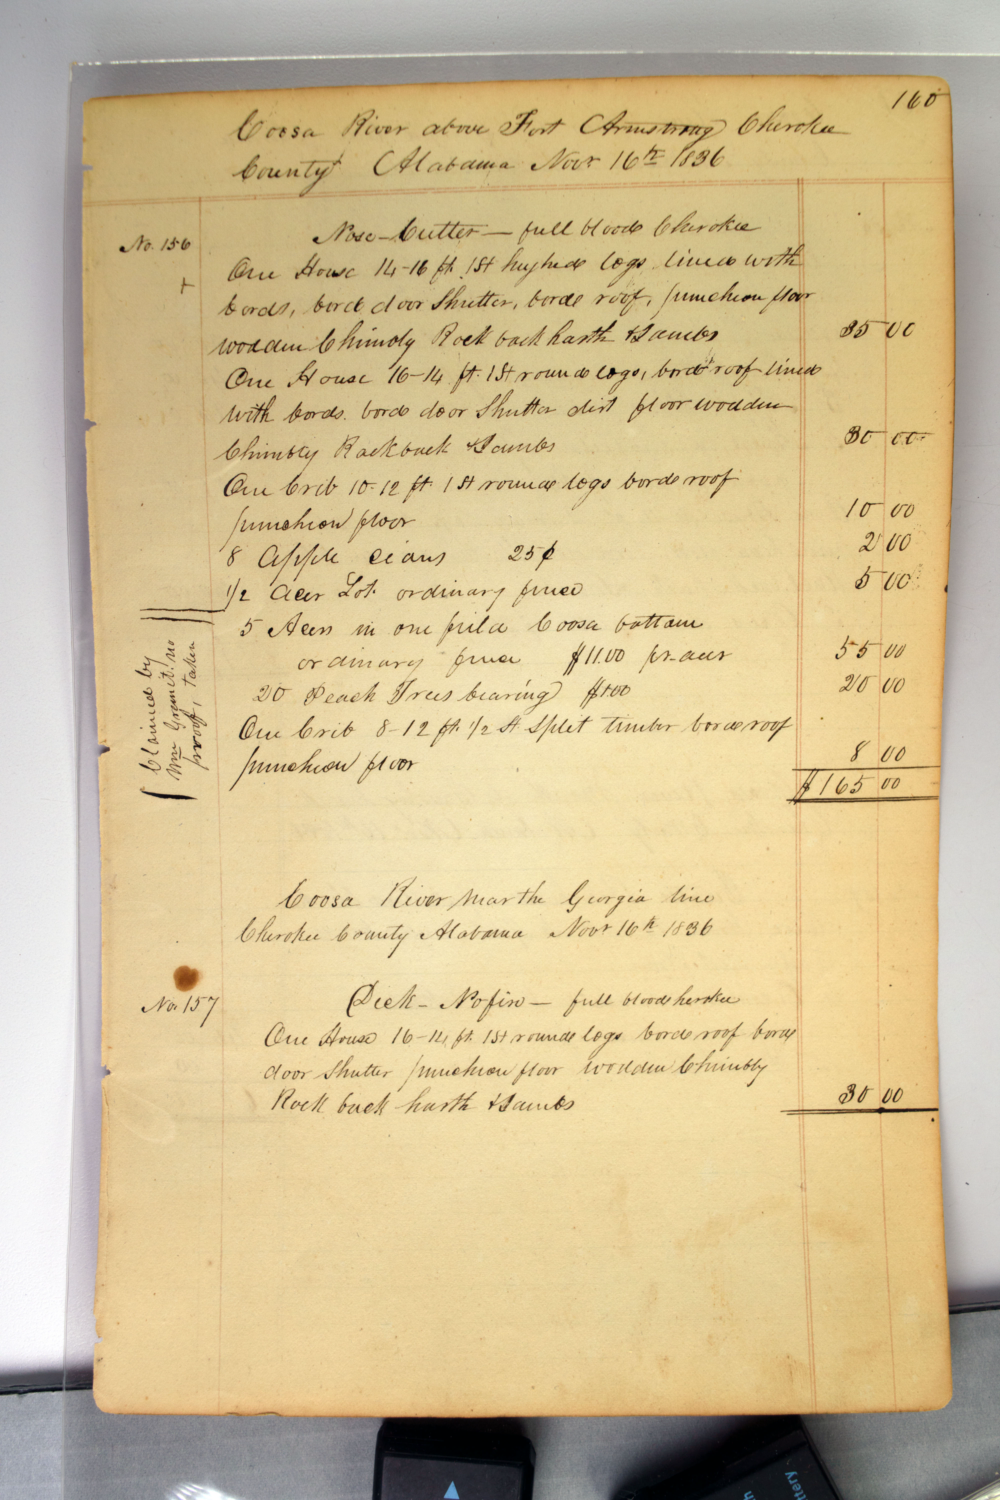 160
Coosa River above Fort Armstrong Cherokee
County Alabama Novr 16th 1836
No. 156
Nose-Cutter — full blood Cherokee
+
One House 14-16 ft. 1 St hughed logs lined with
bords, bord door Shutter, borde roof, puncheon floor
wodden Chimbly Rock back harth & Jambs 35 00
One House 16-14 ft. 1 St round logs, bord roof lined
with bords. bord door Shutter dirt floor wodden
Chimbly Rock back & Jambs 30 00
One Crib 10-12 ft. 1 St round logs borde roof
puncheon floor 10 00
8 Apple cians 25¢ 2 00
1/2 Acer Lot ordinary fence 5 00
5 Acers in one feild Coosa bottam
ordinary fence $11.00 pr acer 55 00
20 Peach Trees bearing $1.00 20 00
One Crib 8-12 ft. 1/2 St Split timber borde roof
puncheon floor 8 00
$165 00
Claimed by
Wm Gremit. no
proof, taken
Coosa River near the Georgia line
Cherokee County Alabama Novr 16th 1836
No. 157
Dick - Nofire — full blood herokee
One House 16-14 ft. 1 St round logs borde roof borde
door Shutter puncheon floor wodden Chimbly
Rock back harth & Jambs 30 00
ttery